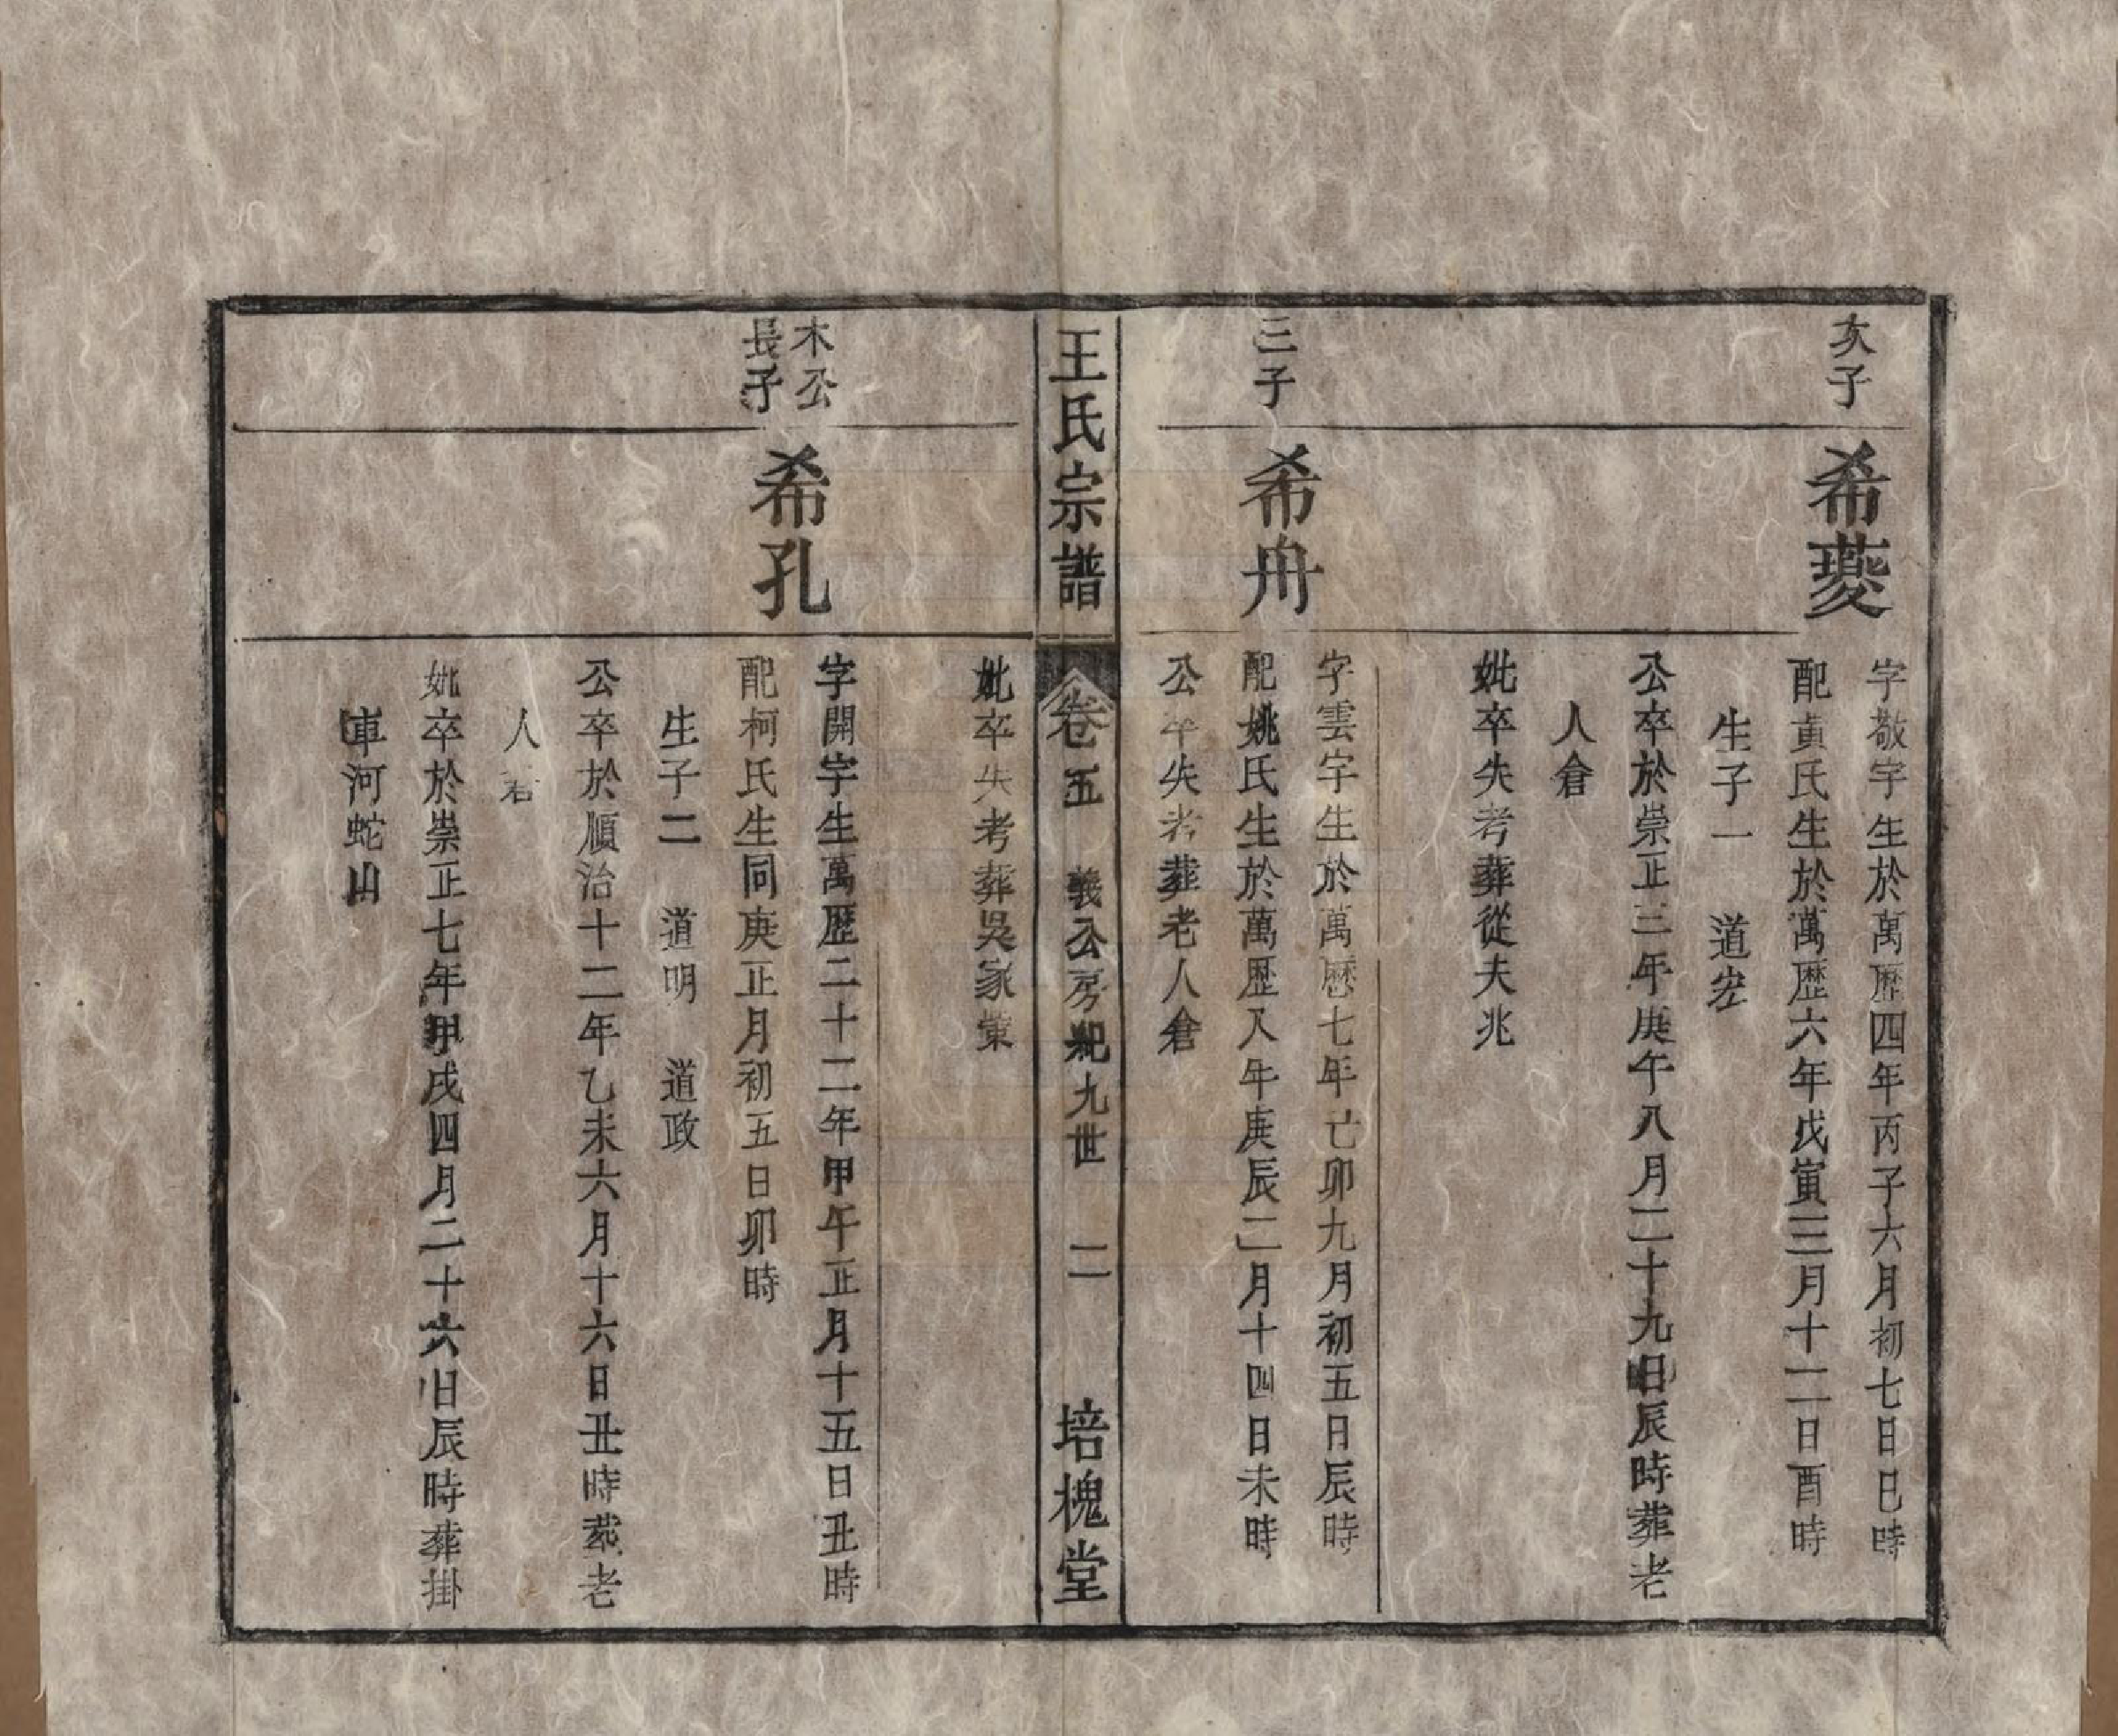 次子
希夔
字敬宇生於萬歷四年丙子六月初七日巳時
配黃氏生於萬歷六年戊寅三月十二日酉時
生子一 道宏
公卒於崇正三年庚午八月二十九日辰時葬老
人倉
妣卒失考葬從夫兆
三子
希冉
字雲宇生於萬歷七年己卯九月初五日辰時
配姚氏生於萬歷八年庚辰二月十四日未時
公卒失考葬老人倉
王氏宗譜 卷五 義公房紀九世 二 培槐堂
妣卒失考葬吳家
木公
長子
希孔
字開宇生萬歷二十二年甲午正月十五日丑時
配柯氏生同庚正月初五日卯時
生子二 道明 道政
公卒於順治十二年乙未六月十六日丑時葬老
人
妣卒於崇正七年甲戌四月二十六日辰時葬掛
車河蛇山